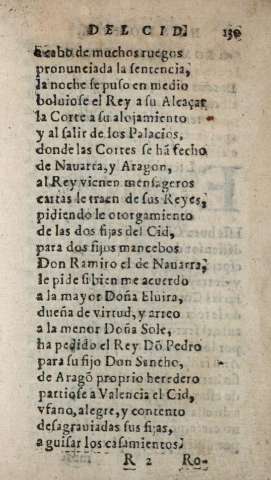 DEL CID. 130
acabo de muchos ruegos
pronunciada la sentencia,
la noche se puso en medio
boluiose el Rey a su Alcaçar
la Corte a su alojamiento
y al salir de los Palacios,
donde las Cortes se hã fecho
de Nauarra, y Aragon,
al Rey vienen mensageros
cartas le traen de sus Reyes,
pidiendo le otorgamiento
de las dos fijas del Cid,
para dos fijos mancebos.
Don Ramiro el de Nauarra,
le pide si bien me acuerdo
a la mayor Doña Eluira,
dueña de virtud, y arreo
a la menor Doña Sole,
ha pedido el Rey Dõ Pedro
para su fijo Don Sancho,
de Aragõ proprio heredero
partiose a Valencia el Cid,
vfano, alegre, y contento
desagrauiadas sus fijas,
a guisar los casamientos.
R 2 Ro-